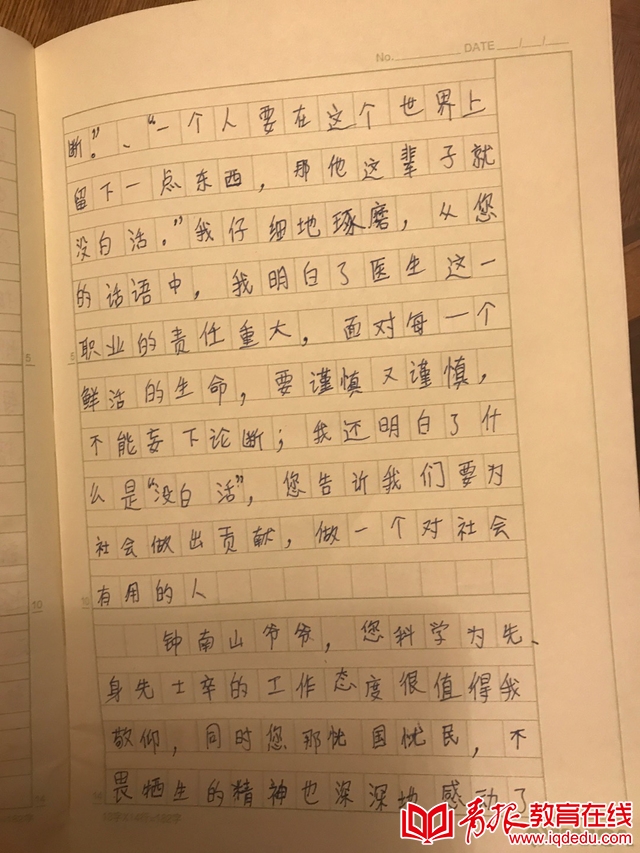 No. DATE / /
断。”、“一个人要在这个世界上
留下一点东西，那他这辈子就
没白活。”我仔细地琢磨，从您
的话语中，我明白了医生这一
职业的责任重大，面对每一个
鲜活的生命，要谨慎又谨慎，
不能妄下论断；我还明白了什
么是“没白活”，您告诉我们要为
社会做出贡献，做一个对社会
有用的人
钟南山爷爷，您科学为先、
身先士卒的工作态度很值得我
敬仰，同时您那忧国忧民，不
畏牺生的精神也深深地感动了
5
5
10
10
青报教育在线
www.iqdedu.com